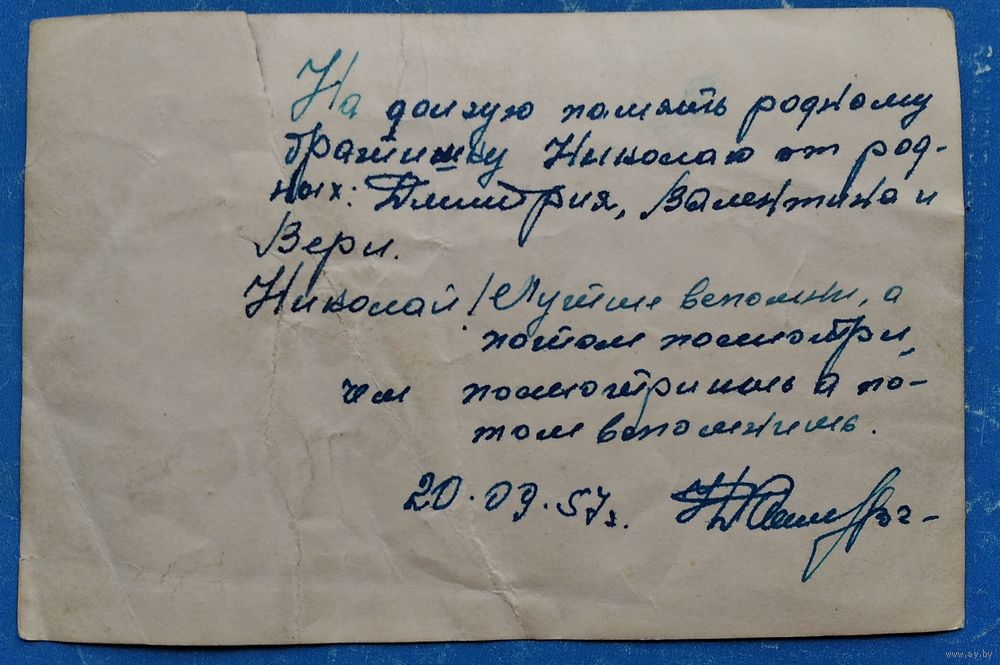 На долгую память родному
братишку Николаю от род-
ных: Дмитрия, Валентина и
Веры.
Николай! Лутше вспомни, а
потом посмотри,
чем посмотришь а по-
том вспомнишь.
20.09.57г.
www.ay.by